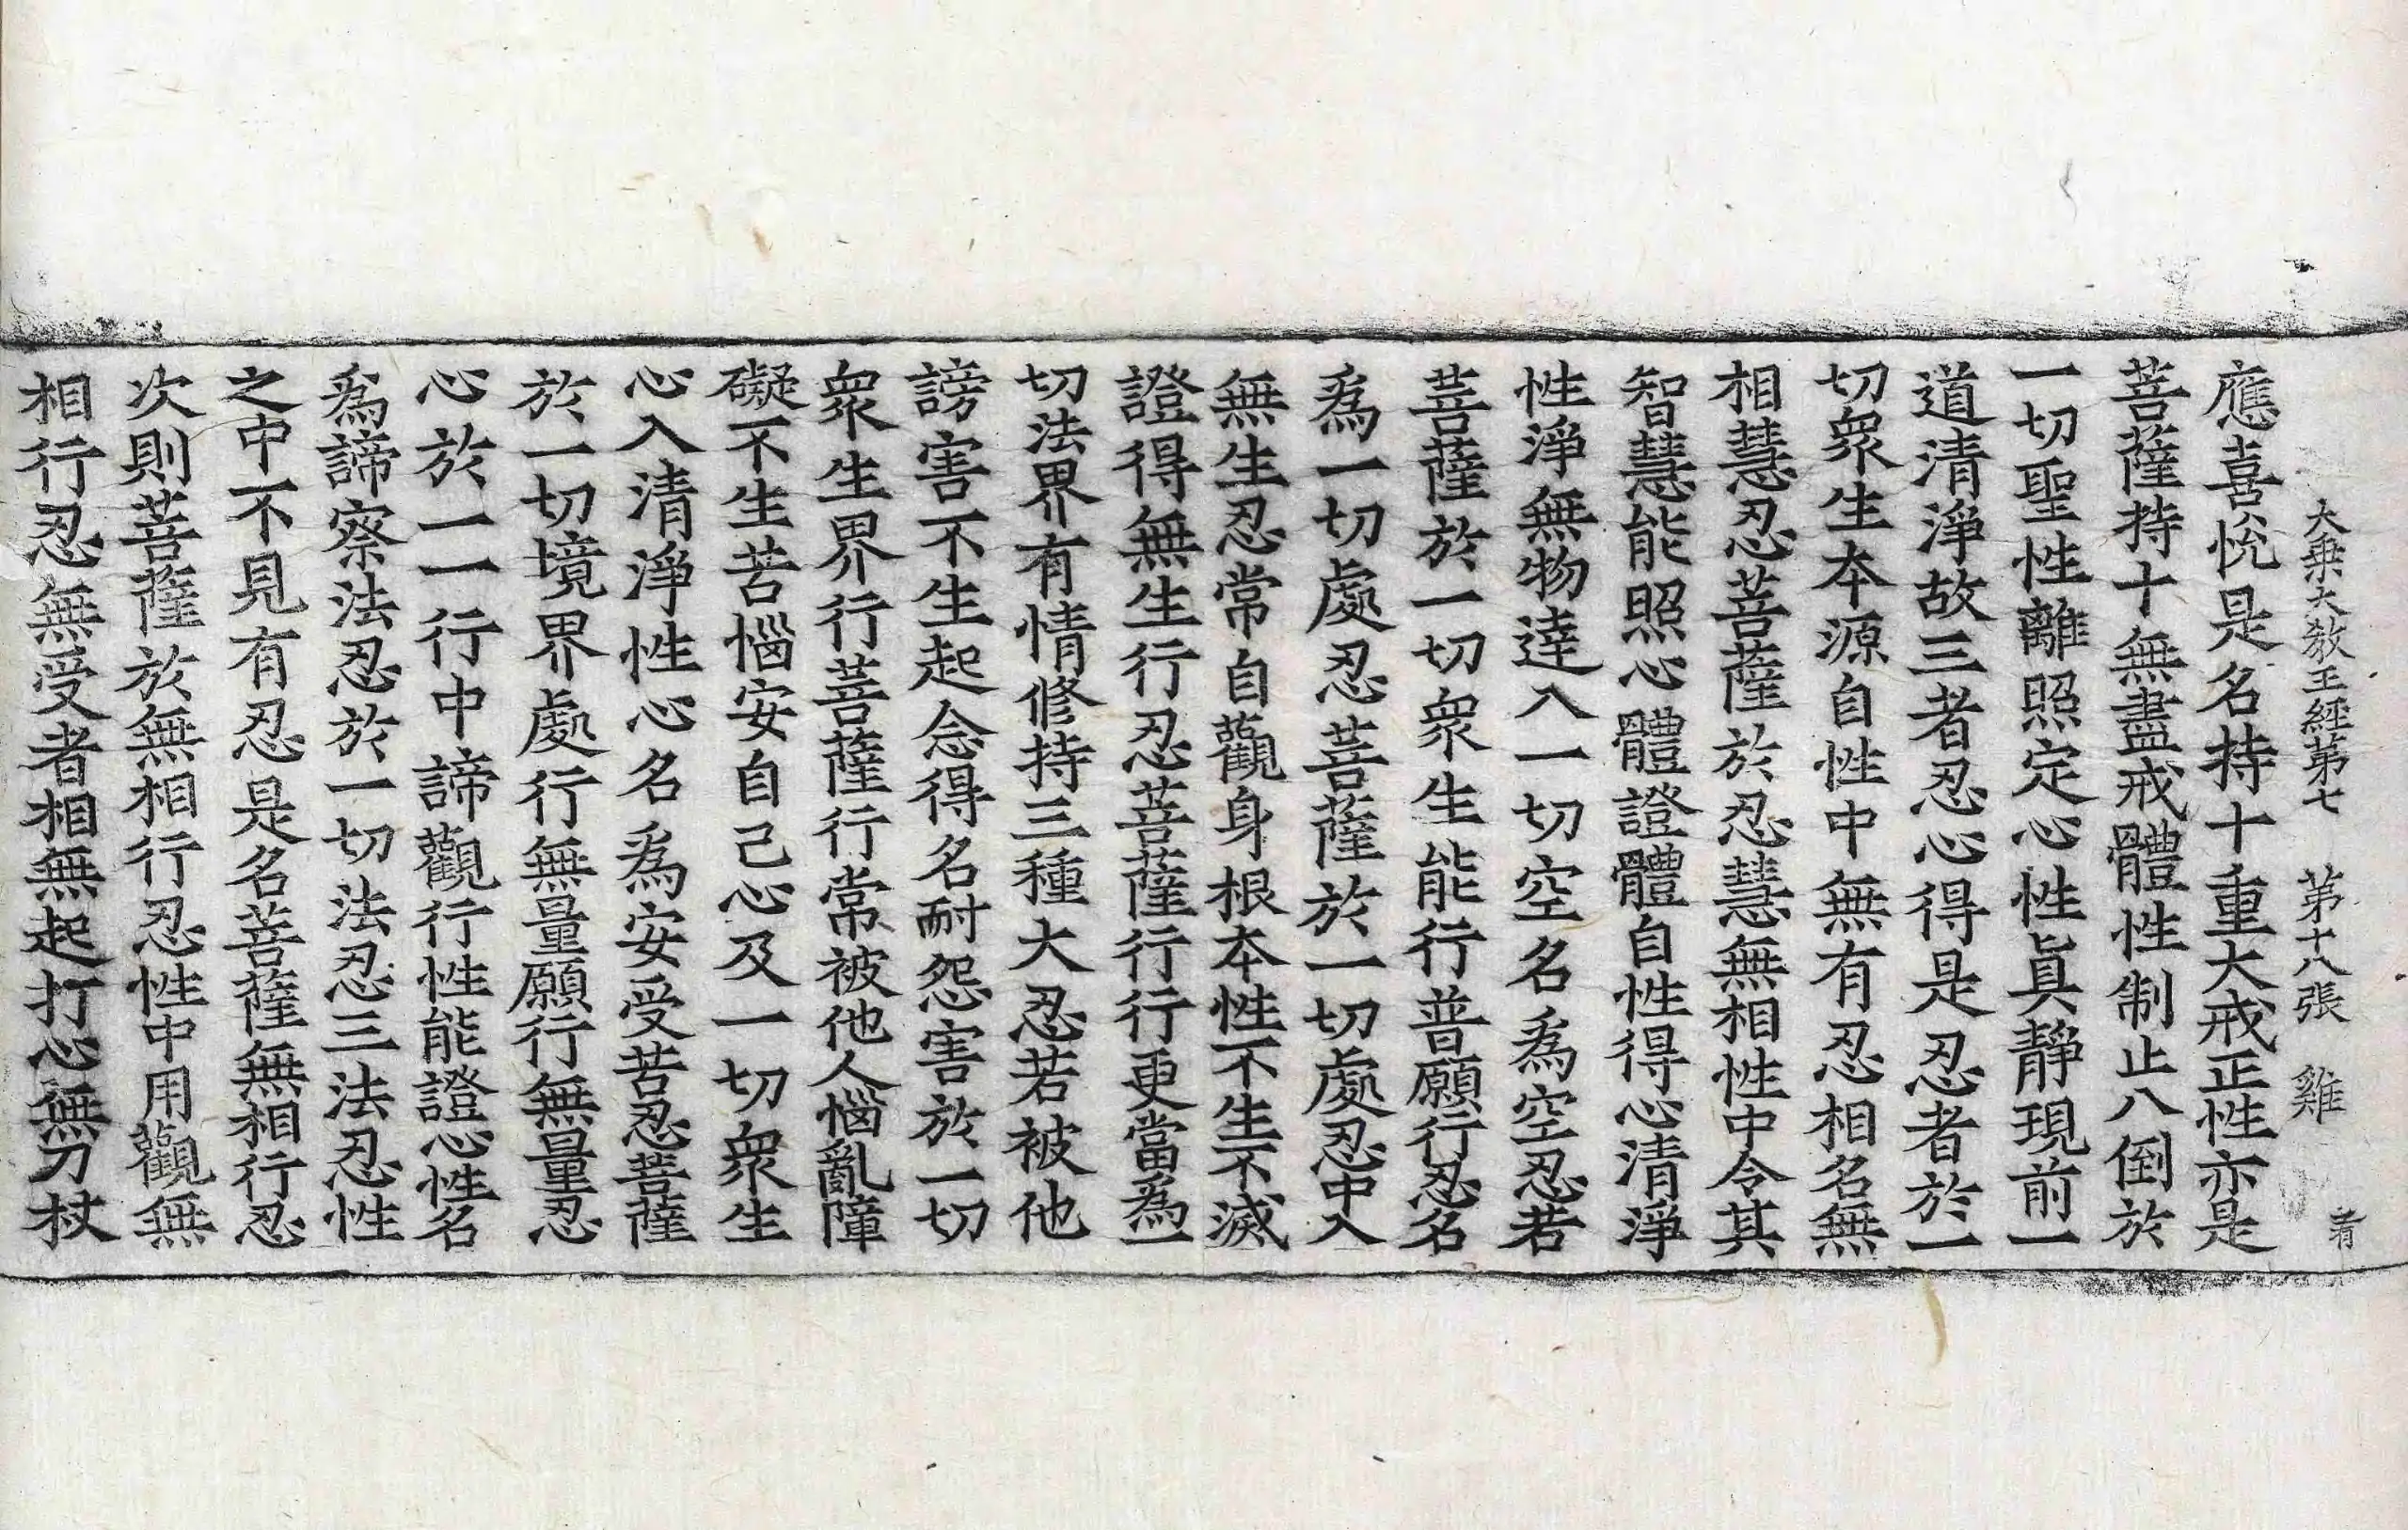 大乗大教王經第七　第十八張　雞
應喜悅是名持十重大戒正性亦是
菩薩持十無盡戒體性制止八倒於
一切聖性離照定心性眞靜現前一
道清淨故三者忍心得是忍者於一
切衆生本源自性中無有忍相名無
相慧忍菩薩於忍慧無相性中令其
智慧能照心體證體自性得心清淨
性淨無物達入一切空名爲空忍若
菩薩於一切衆生能行普願行忍名
爲一切處忍菩薩於一切處忍中入
無生忍常自觀身根本性不生不滅
證得無生行忍菩薩行行更當爲一
切法界有情修持三種大忍若被他
謗害不生起念得名耐怨害於一切
衆生界行菩薩行常被他人惱亂障
礙不生苦惱安自己心及一切衆生
心入清淨性心名爲安受苦忍菩薩
於一切境界處行無量願行無量忍
心於一一行中諦觀行性能證心性名
爲諦察法忍於一切法忍三法忍性
之中不見有忍是名菩薩無相行忍
次則菩薩於無相行忍性中用觀無
相行忍無受者相無起打心無刀杖